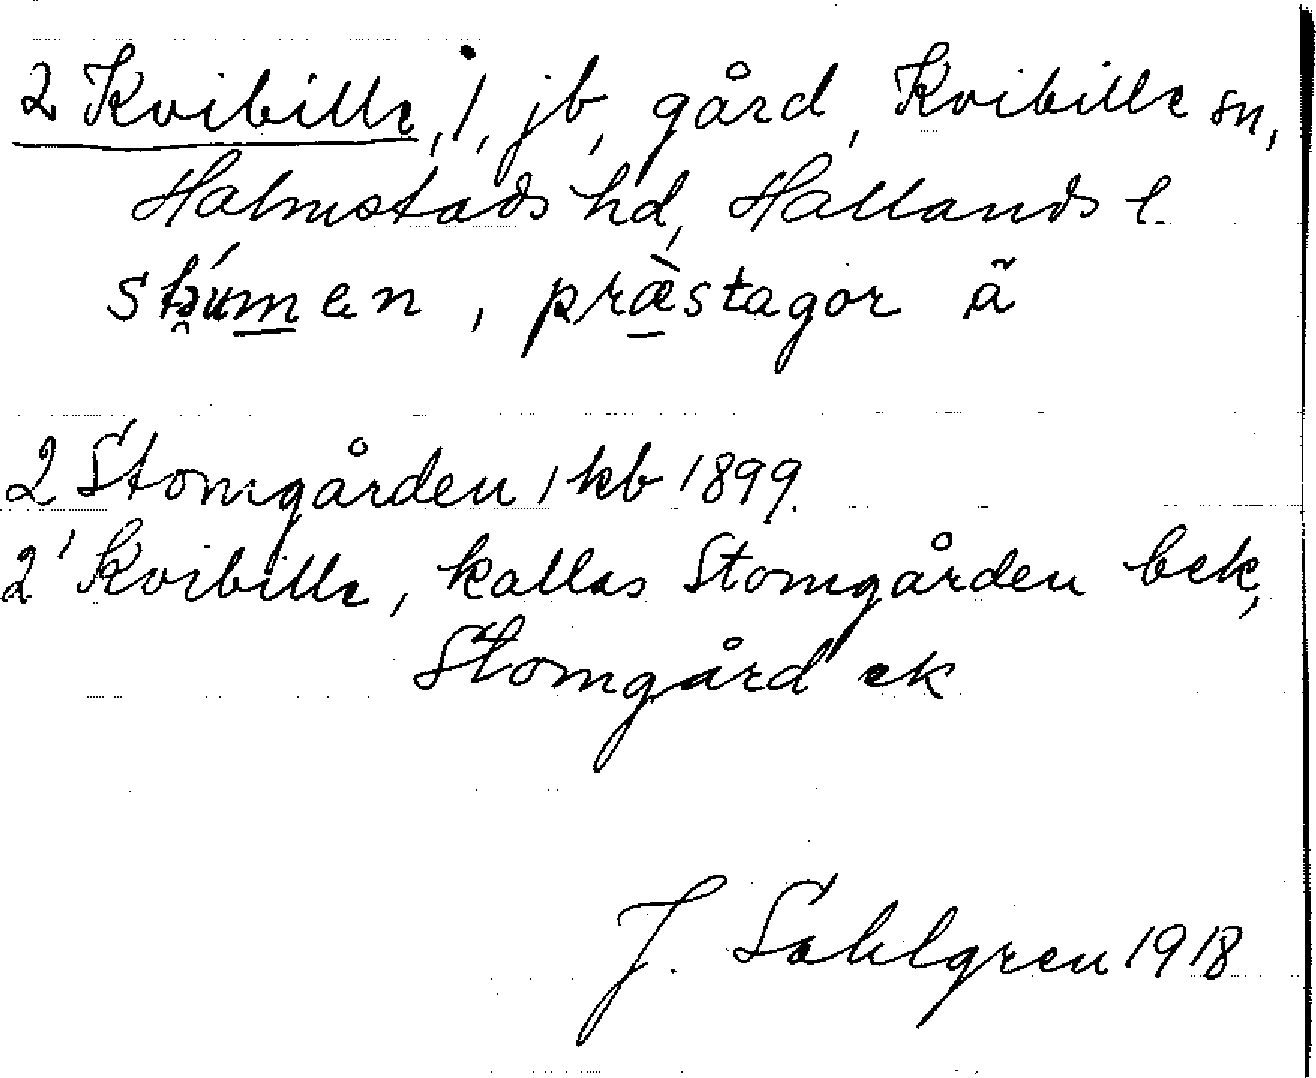 2 Kvibille, 1, jb, gård, Kvibille sn,
Halmstads hd, Hallands l.
præ̀stagor ã
2 Stomgården 1 kb 1899.
2¹ Kvibille, kallas Stomgården bek,
Stomgård ek
J. Sahlgren 1918